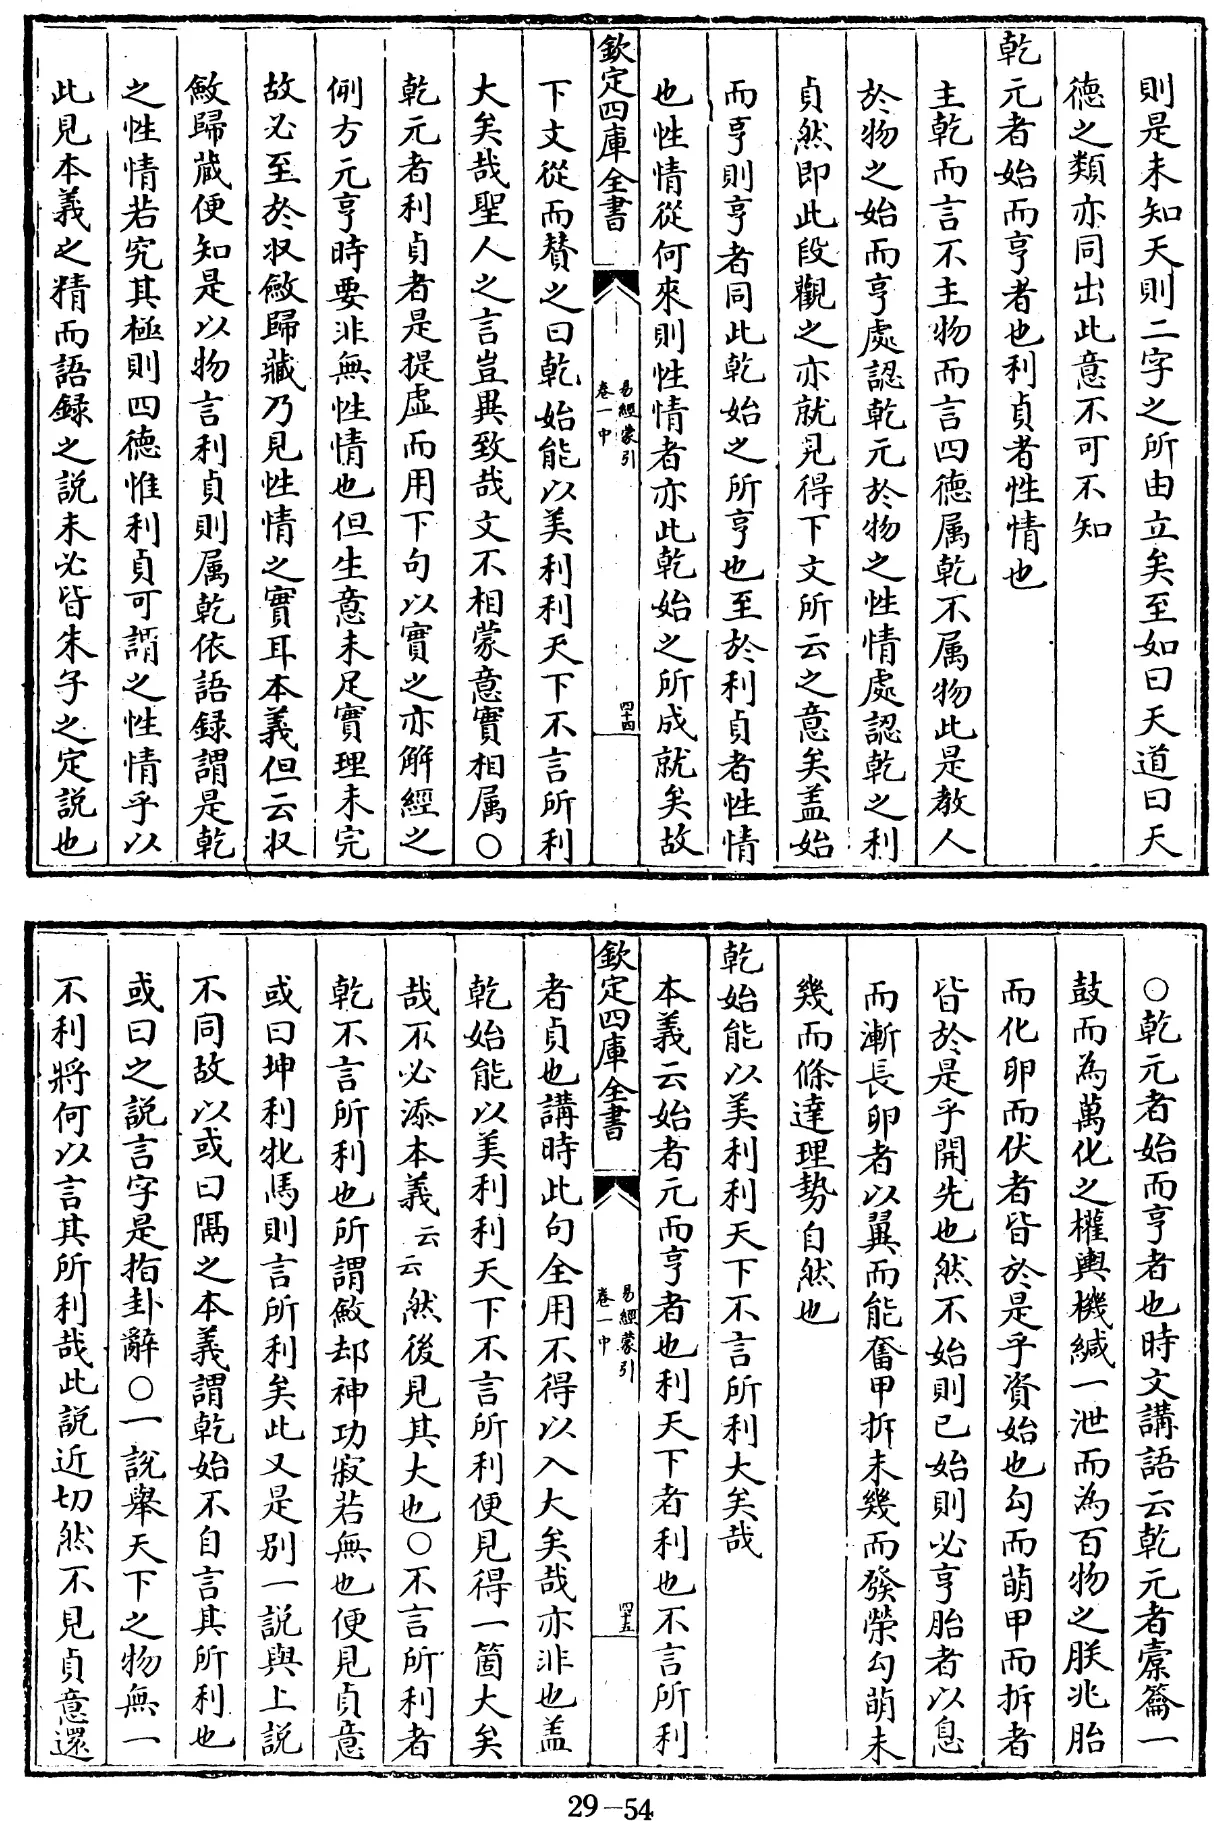 則是未知天則二字之所由立矣至如曰天道曰天
德之類亦同出此意不可不知
乾元者始而亨者也利貞者性情也
主乾而言不主物而言四德属乾不属物此是教人
於物之始而亨處認乾元於物之性情處認乾之利
貞然即此段觀之亦就見得下文所云之意矣盖始
而亨則亨者同此乾始之所亨也至於利貞者性情
也性情從何來則性情者亦此乾始之所成就矣故
欽定四庫全書
易經蒙引
卷一中
四十四
下文從而賛之曰乾始能以美利利天下不言所利
大矣哉聖人之言豈異致哉文不相蒙意實相属○
乾元者利貞者是提虛而用下句以實之亦解經之
例方元亨時要非無性情也但生意未足實理未完
故必至於収斂歸藏乃見性情之實耳本義但云収
斂歸蔵便知是以物言利貞則属乾依語録謂是乾
之性情若究其極則四德惟利貞可謂之性情乎以
此見本義之精而語録之説未必皆朱子之定説也
○乾元者始而亨者也時文講語云乾元者橐籥一
鼓而為萬化之權輿機緘一泄而為百物之朕兆胎
而化卵而伏者皆於是乎資始也勾而萌甲而拆者
皆於是乎開先也然不始則已始則必亨胎者以息
而漸長卵者以翼而能奮甲拆未幾而發榮勾萌未
幾而條達理勢自然也
乾始能以美利利天下不言所利大矣哉
本義云始者元而亨者也利天下者利也不言所利
欽定四庫全書
易經蒙引
卷一中
四十五
者貞也講時此句全用不得以入大矣哉亦非也盖
乾始能以美利利天下不言所利便見得一箇大矣
哉不必添本義云云然後見其大也○不言所利者
乾不言所利也所謂斂却神功寂若無也便見貞意
或曰坤利牝馬則言所利矣此又是别一説與上説
不同故以或曰隔之本義謂乾始不自言其所利也
或曰之説言字是指卦辭○一説舉天下之物無一
不利將何以言其所利哉此説近切然不見貞意還
29-54